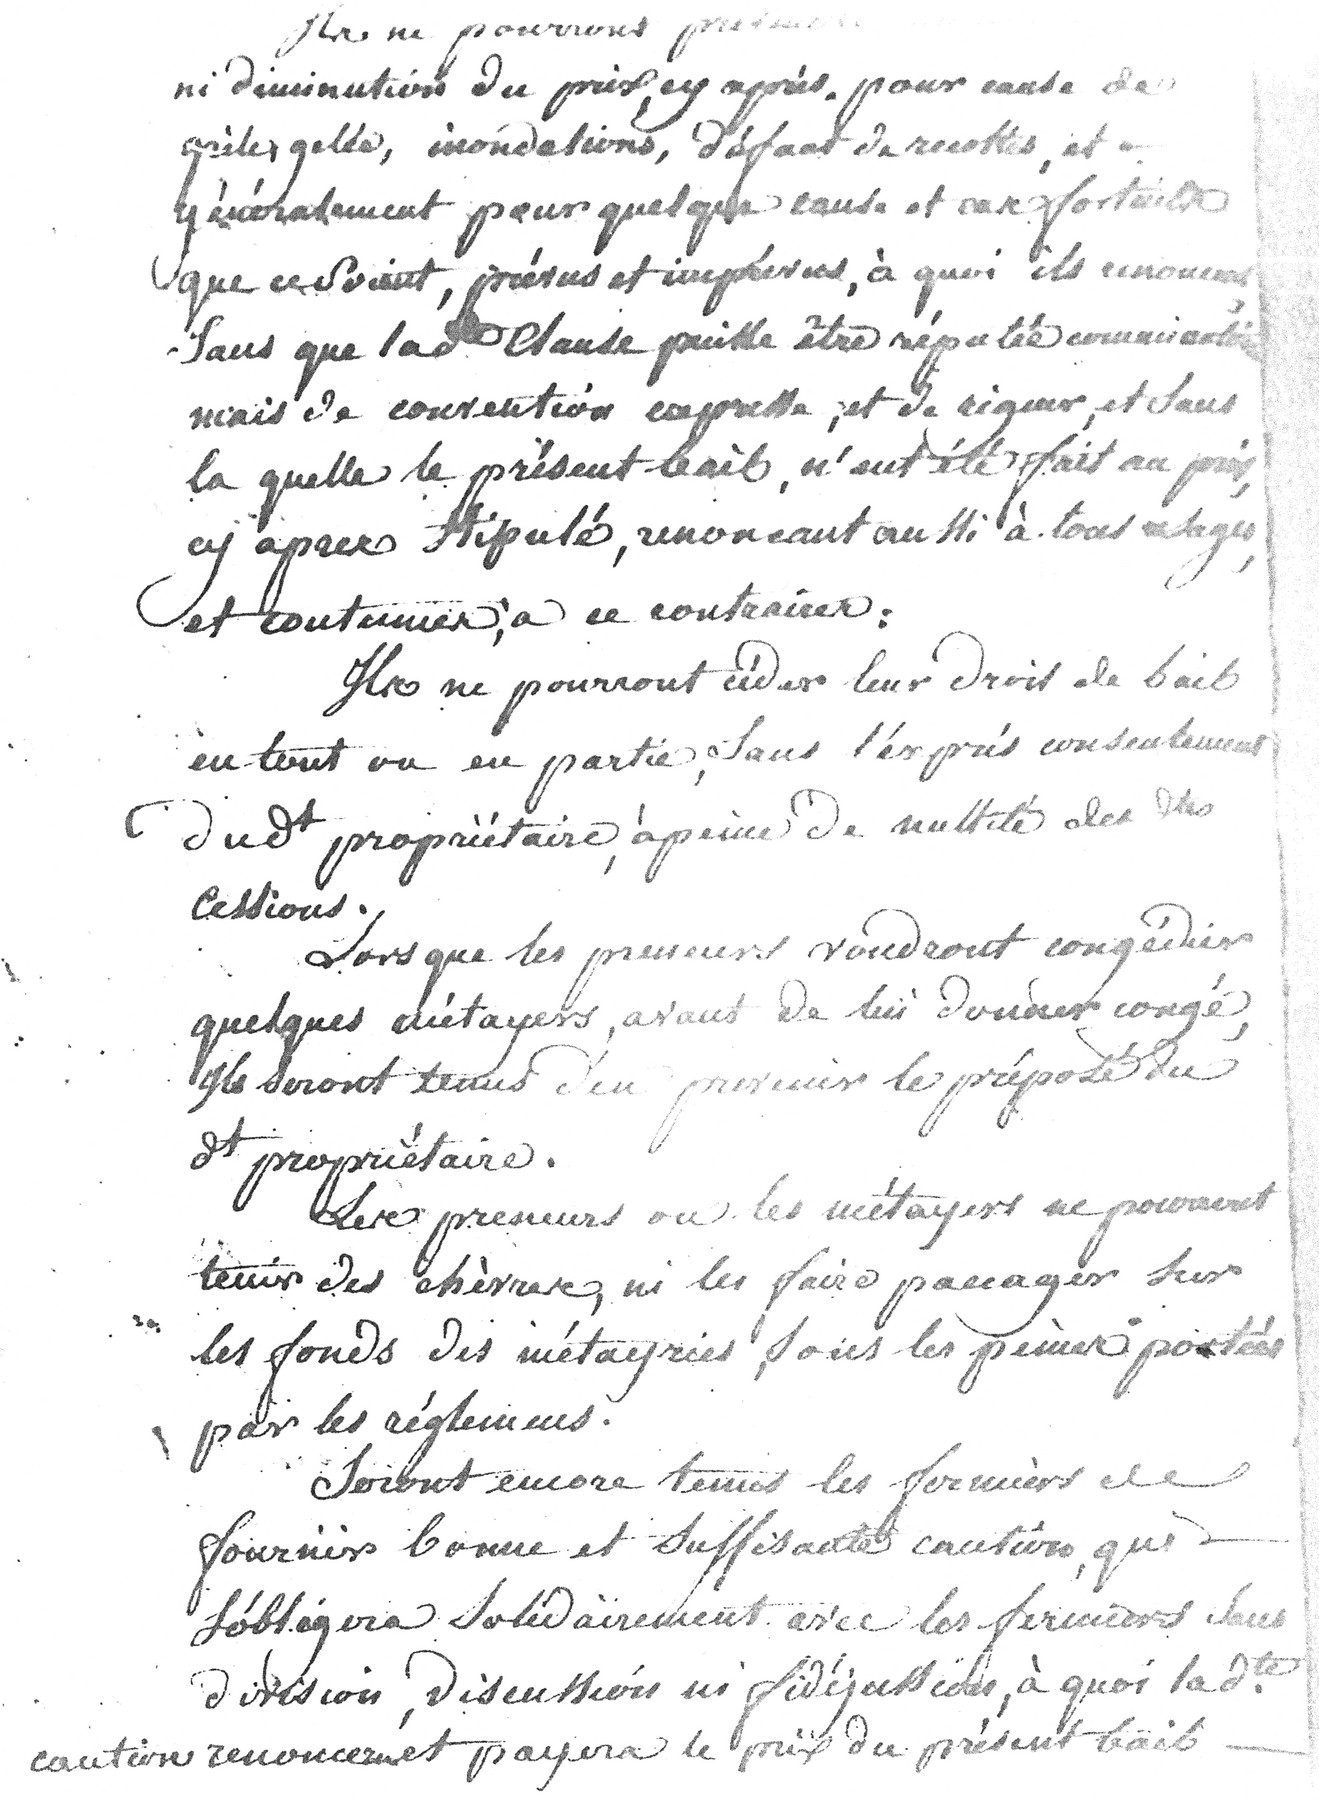 Ils ne pourrons
ni diminution du prix, cy après, pour cause de
grile, gelée, inondations, défaut de recottes, et
généralement pour quelque cause et cas fortuits
que ce Soient, prévus et imprévus, à quoi ils renoncent,
Sans que lad.e Clause puisse être réputée comminatoire
mais de convention expresse, et de rigueur, et Sans
la quelle le présent bail, n'eut été fait au prix,
cy apres Stipulé, renoncant aussi à tous usages,
et coutumes, a ce contraires:
Ils ne pourront céder leur droit de bail
en tout ou en partie, Sans l'exprés consentement
dudt propriétaire, à peine de nullité des dtes
Cessions.
Lors que les preneurs voudront congédier
quelques métayers, avant de lui donner congé,
Ils Seront tenus d'en prevenir le préposé du
dt propriétaire.
Les preneurs ou les métayers ne pourront
tenir des chèvres, ni les faire pacager Sur
les fonds des métayries, Sous les peines portées
par les réglemens.
Seront encore tenus les fermiers de
fournir bonne et Suffisante caution, qui
S'obligera Solidairement avec les fermiers Sans
division, discussion ni fidéjussion, à quoi lad.te
caution renoncera, et payera le prix du présent bail